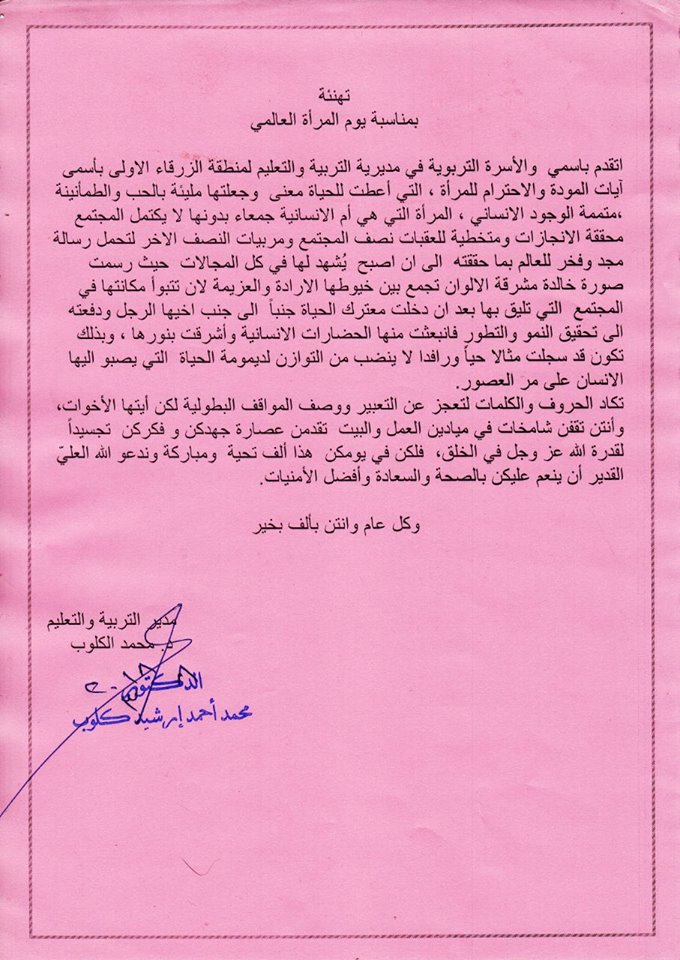 تهنئة
بمناسبة يوم المرأة العالمي
اتقدم باسمي والأسرة التربوية في مديرية التربية والتعليم لمنطقة الزرقاء الاولى بأسمى
آيات المودة والاحترام للمرأة ، التي أعطت للحياة معنى وجعلتها مليئة بالحب والطمأنينة
،متممة الوجود الانساني ، المرأة التي هي أم الانسانية جمعاء بدونها لا يكتمل المجتمع
محققة الانجازات ومتخطية للعقبات نصف المجتمع ومربيات النصف الاخر لتحمل رسالة
مجد وفخر للعالم بما حققته الى ان اصبح يُشهد لها في كل المجالات حيث رسمت
صورة خالدة مشرقة الالوان تجمع بين خيوطها الارادة والعزيمة لان تتبوأ مكانتها في
المجتمع التي تليق بها بعد ان دخلت معترك الحياة جنباً الى جنب اخيها الرجل ودفعته
الى تحقيق النمو والتطور فانبعثت منها الحضارات الانسانية وأشرقت بنورها ، وبذلك
تكون قد سجلت مثالا حياً ورافدا لا ينضب من التوازن لديمومة الحياة التي يصبو اليها
الانسان على مر العصور.
تكاد الحروف والكلمات لتعجز عن التعبير ووصف المواقف البطولية لكن أيتها الأخوات،
وأنتن تقفن شامخات في ميادين العمل والبيت تقدمن عصارة جهدكن و فكركن تجسيداً
لقدرة الله عز وجل في الخلق، فلكن في يومكن هذا ألف تحية ومباركة وندعو الله العليّ
القدير أن ينعم عليكن بالصحة والسعادة وأفضل الأمنيات.
وكل عام وانتن بألف بخير
مدير التربية والتعليم
د. محمد الكلوب
الدكتور
محمد أحمد إرشيد كلوب